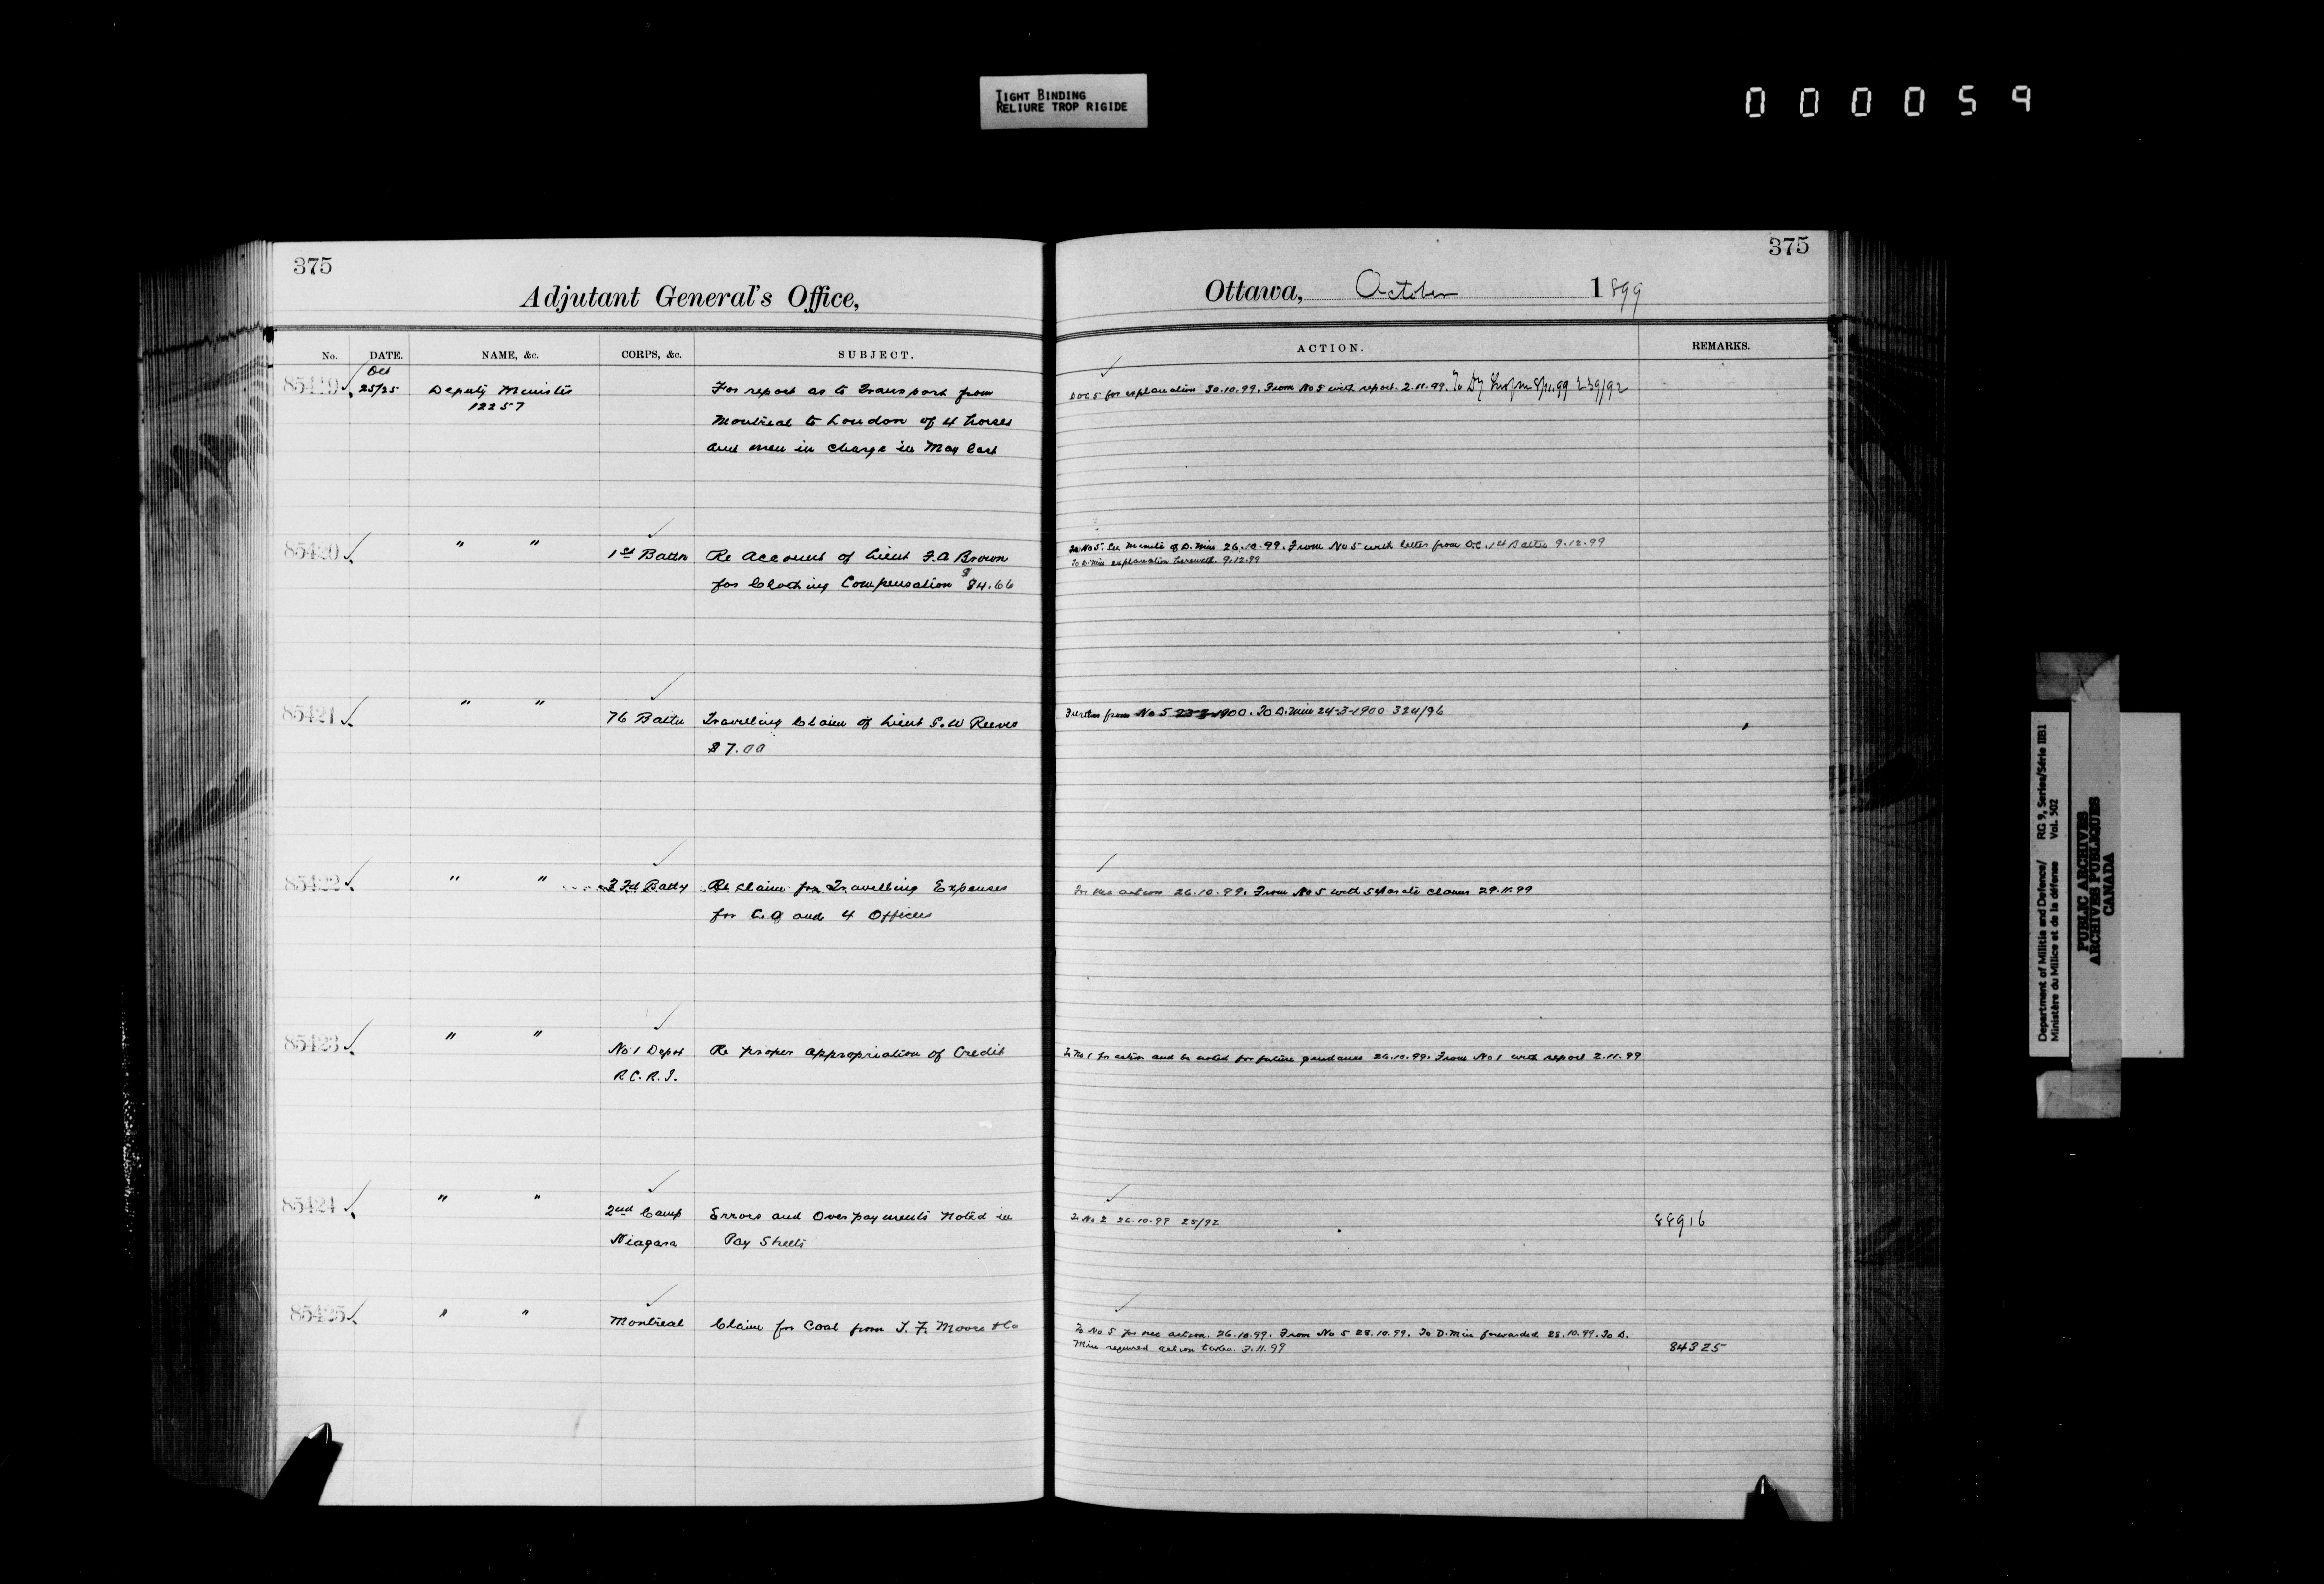 TIGHT BINDING
RELIURE TROP RIGIDE
000059
375
Adjutant General's Office,
No. DATE. NAME, &c. CORPS, &c. SUBJECT.
85419 Oct 25/25 Deputy Minister For report as to Transport from
12257
Montreal to London of 4 horses
and men in charge in May last
85420 " " 1st Battn Re Account of Lieut F.A Brown
for Clothing Compensation $84.66
85421 " " 76 Battn Travelling Claim of Lieut S.W Reeves
$7.00
85422 " " Re Claim for Travelling Expenses
for C.O and 4 Officers
85423 " " No 1 Depot Re proper appropriation of Credit
R.C.R.I.
85424 " " 2nd Camp Errors and Overpayments noted in
Niagara Pay Sheets
85425 " " Montreal Claim for Coal from T. F. Moore & Co
375
Ottawa, October 1899
ACTION. REMARKS.
DOC 5 for explanation 30.10.99. From No 5 with report. 2.11.99. To 8/11.99 239/92
To No 5. See Minute of D. Min 26.10.99. From No 5 with letter from O.C. 1st Battn 9.12.99
To D. Min explanation herewith. 9.12.99
Further from No 5 23-3-1900. To D. Min 24-3-1900 324/96
For nec action 26.10.99. From No 5 with separate claims 29.11.99
To No 1 for action and be noted for future guidance 26.10.99. From No 1 with report 2.11.99
To No 2 26.10.99 25/92 88916
To No 5 for nec action. 26.10.99. From No 5 28.10.99. To D. Min forwarded 28.10.99. To D.
Min required action taken. 3.11.99 84325
Department of Militia and Defence/ RG 9, Series/Série IIB1
Ministère du Milice et de la défense Vol. 502
PUBLIC ARCHIVES
ARCHIVES PUBLIQUES
CANADA